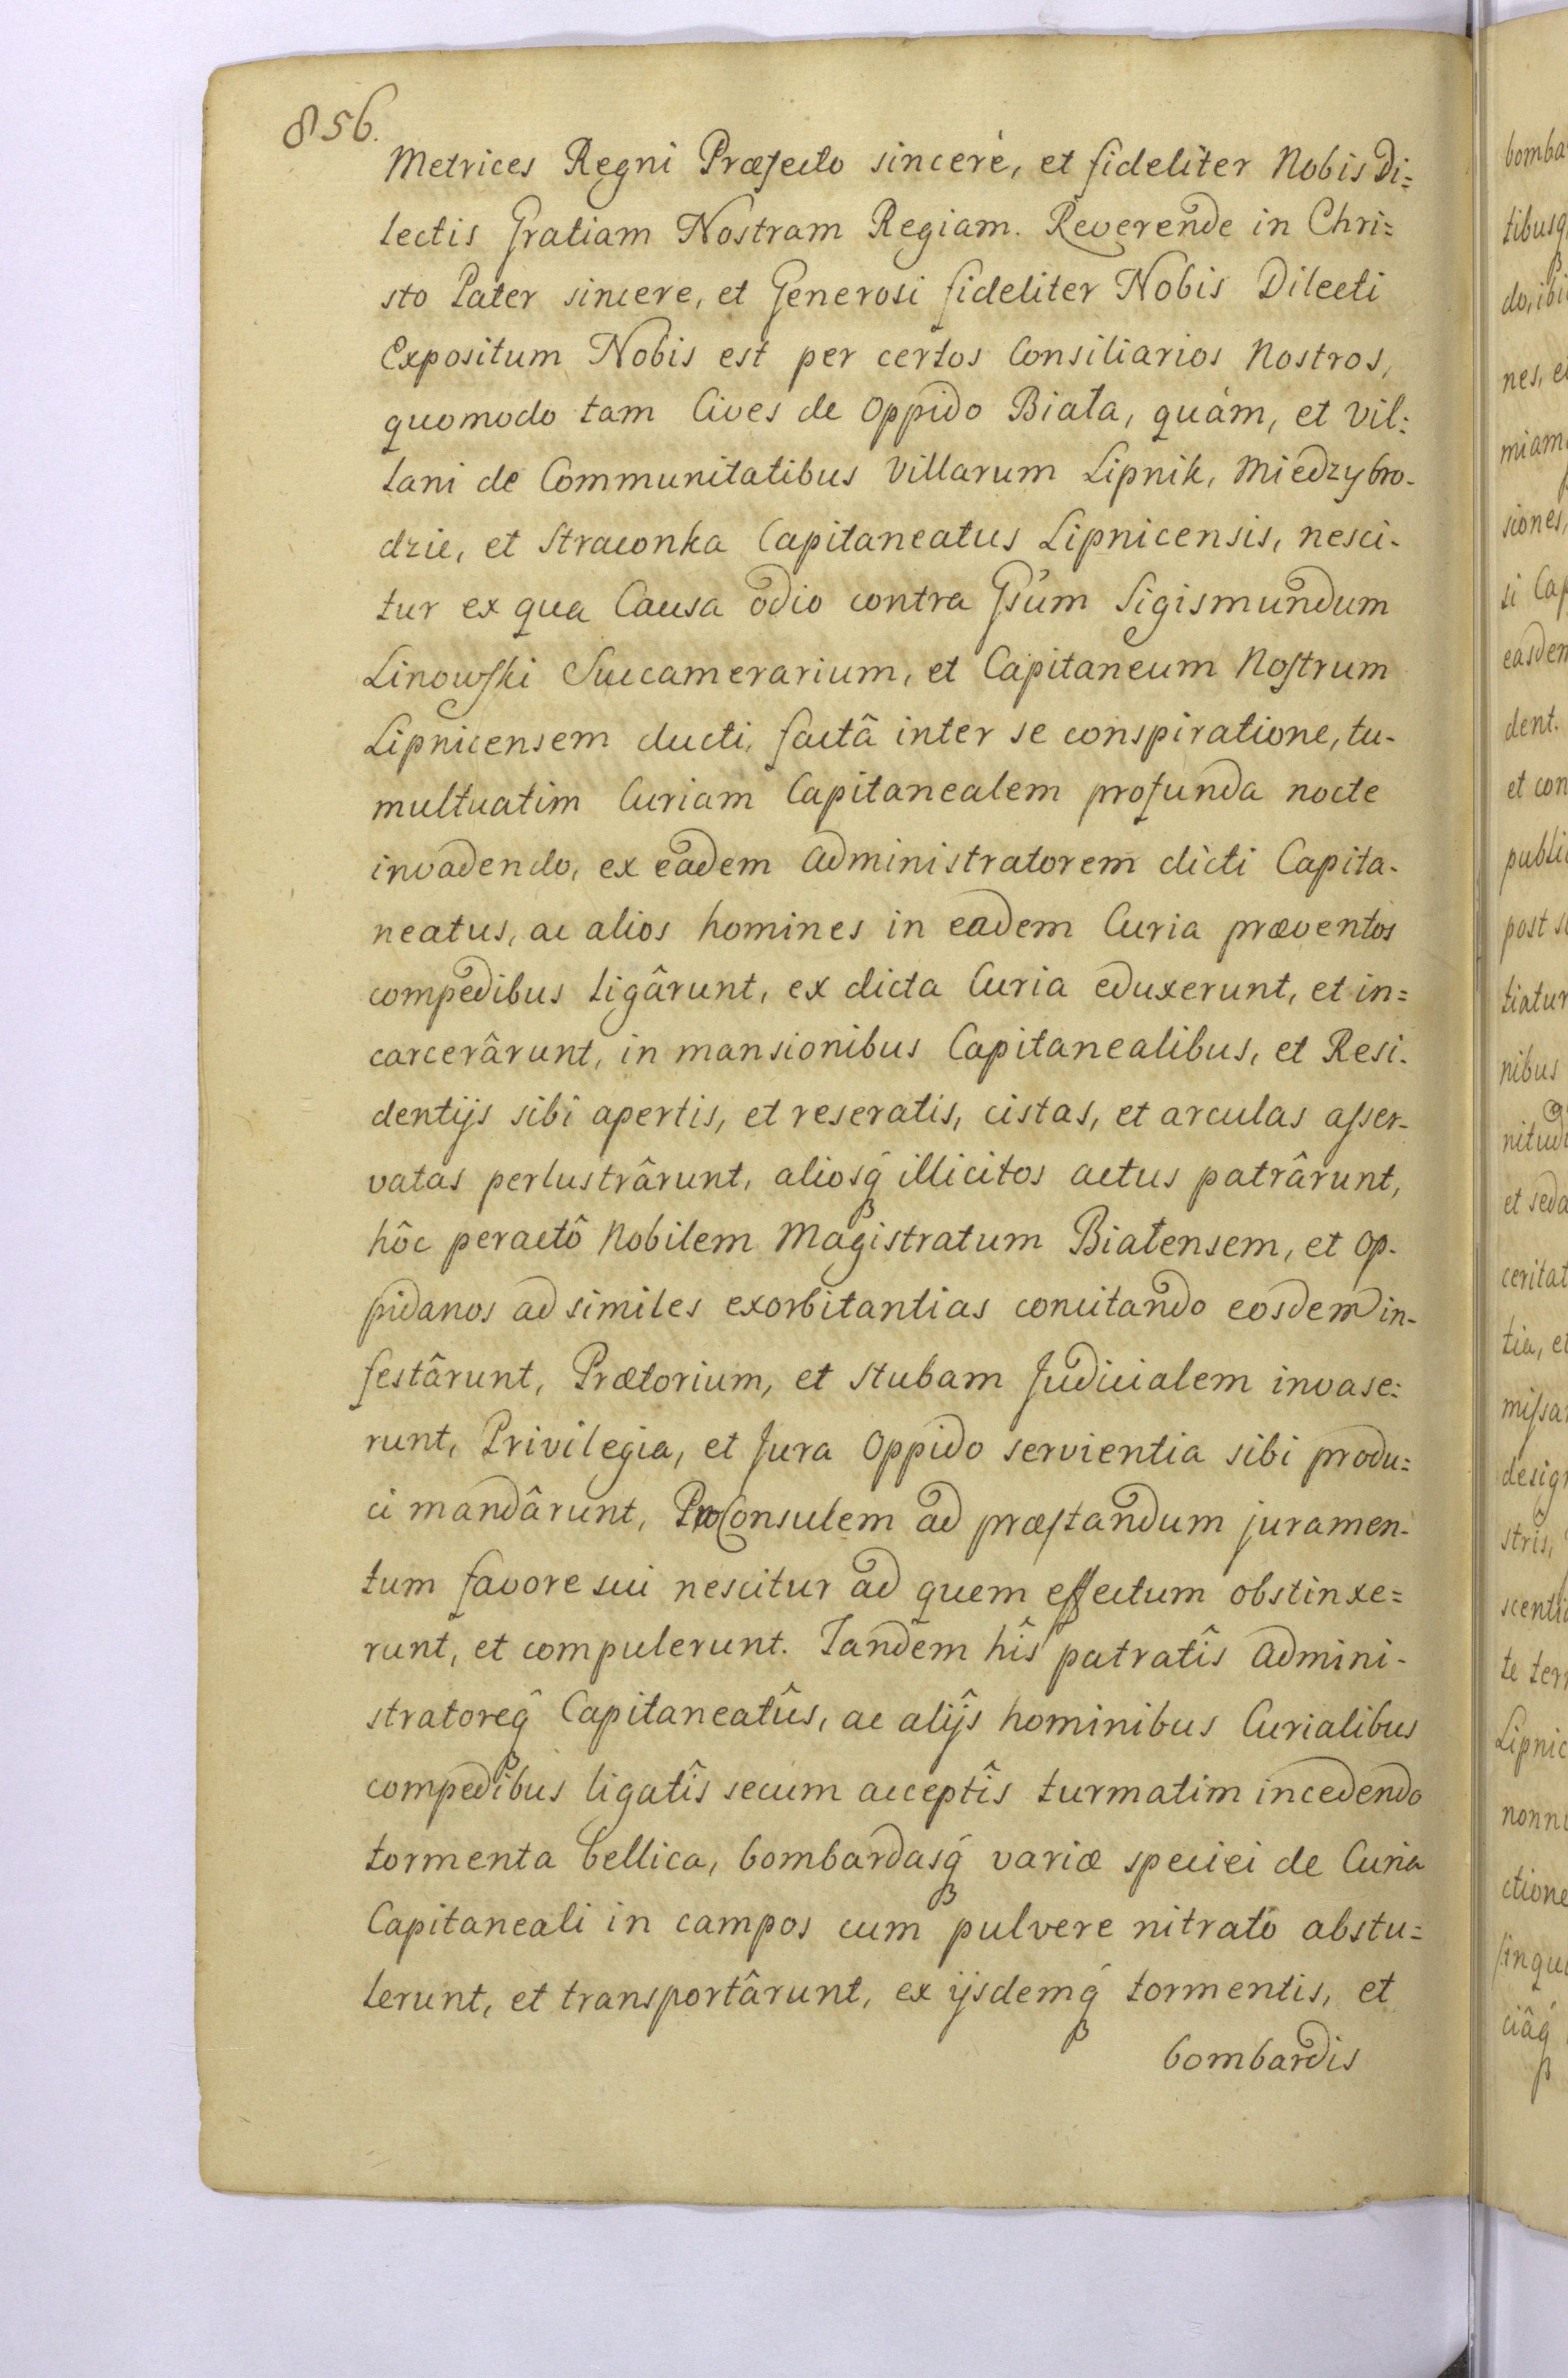 856.
Metrices Regni Præfecto sincerè, et fideliter Nobis Di=
lectis Gratiam Nostram Regiam. Reverende in Chri=
sto Pater sincere, et Generosi fideliter Nobis Dilecti
Expositum Nobis est per certos Consiliarios Nostros,
quomodo tam Cives de Oppido Biała, quàm, et Vil=
lani de Communitatibus Villarum Lipnik, Miedzybro-
dzie, et Straconka Capitaneatus Lipnicensis, nesci-
tur ex qua Causa odio contra Gsum Sigismundum
Linowski Succamerarium, et Capitaneum Nostrum
Lipnicensem ducti, factâ inter se conspiratione, tu-
multuatim Curiam Capitanealem profunda nocte
invadendo, ex eadem Administratorem dicti Capita-
neatus, ac alios homines in eadem Curia præventos
compedibus ligârunt, ex dicta Curia eduxerunt, et in=
carcerârunt, in mansionibus Capitanealibus, et Resi-
dentijs sibi apertis, et reseratis, cistas, et arculas asser-
vatas perlustrârunt, aliosq́ illicitos actus patrârunt,
hôc peractô Nobilem Magistratum Białensem, et Op-
pidanos ad similes exorbitantias concitando eosdem in-
festârunt, Prætorium, et Stubam Judicialem invase=
runt, Privilegia, et Jura Oppido servientia sibi produ=
ci mandârunt, ProConsulem ad præstandum juramen-
tum favore sui nescitur ad quem effectum obstinxe=
runt, et compulerunt. Tandem hîs patratîs Admini-
stratoreq́ Capitaneatûs, ac alijs hominibus Curialibus
compedibus ligatîs secum acceptîs turmatim incedendo
tormenta bellica, bombardasq́ variæ speciei de Curia
Capitaneali in campos cum pulvere nitratô abstu=
lerunt, et transportârunt, ex ijsdemq́ tormentis, et
bombardis